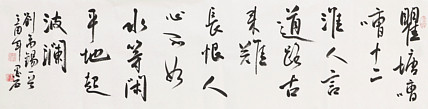 瞿塘嘈
嘈十二
滩人言
道路古
来難
長恨人
心不如
水等闲
平地起
波澜
劉禹锡
酉年